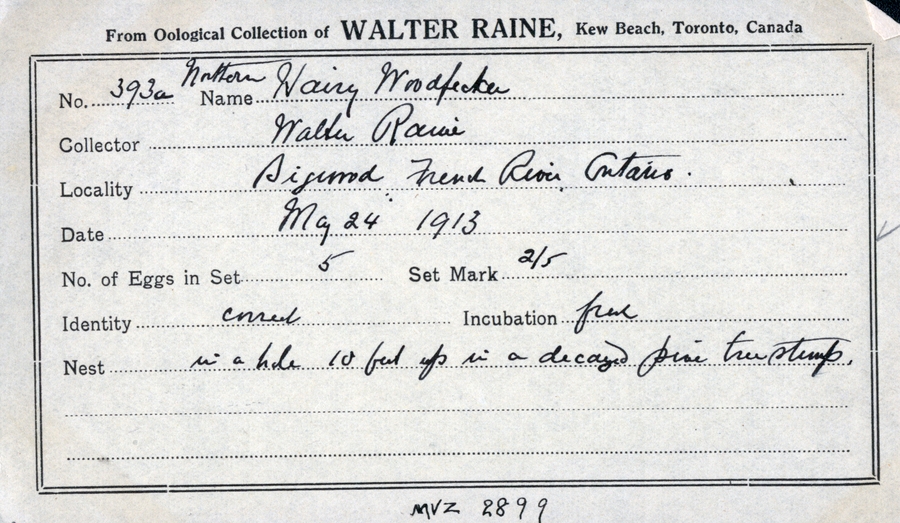 From Oological Collection of WALTER RAINE, Kew Beach, Toronto, Canada
No. 393a Northern Name Hairy Woodpecker
Collector Walter Raine
Locality Bigwood French River Ontario.
Date May 24 1913
No. of Eggs in Set 5 Set Mark 2/5
Identity correct Incubation fresh
Nest in a hole 10 feet up in a decayed pine tree stump.
MVZ 2899